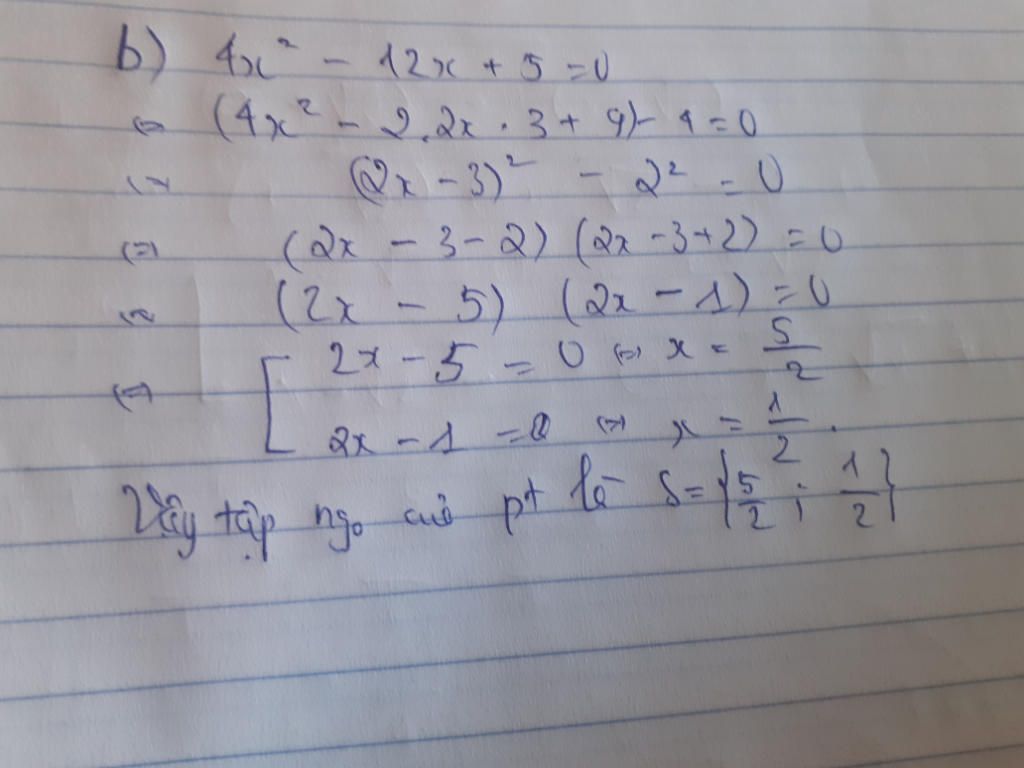 b) 4x² - 12x + 5 = 0
⇔ (4x² - 2.2x . 3 + 9) - 4 = 0
⇔ (2x - 3)² - 2² = 0
⇔ (2x - 3 - 2) (2x - 3 + 2) = 0
⇔ (2x - 5) (2x - 1) = 0
⇔ [ 2x - 5 = 0 ⇔ x = 5/2
2x - 1 = 0 ⇔ x = 1/2 .
Vậy tập ngo của pt là S = {5/2 ; 1/2}